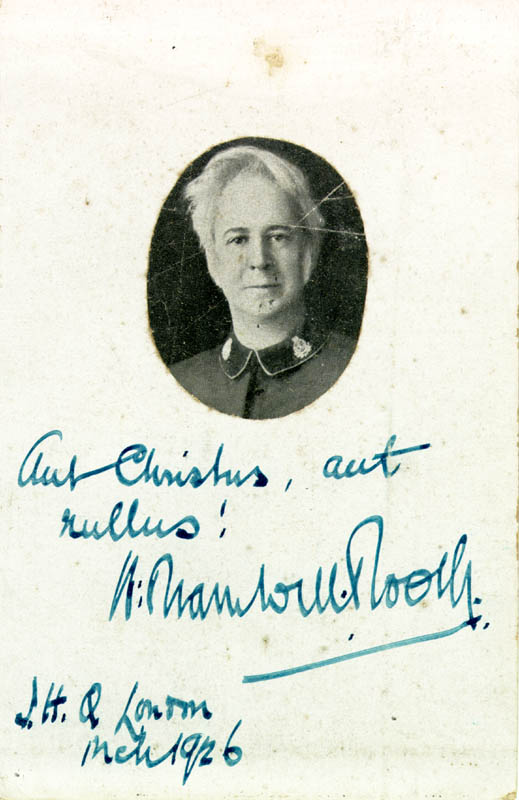 Aut Christus, aut
nullus!
W. Bramwell Booth.
I.H.Q London
Mch 1926